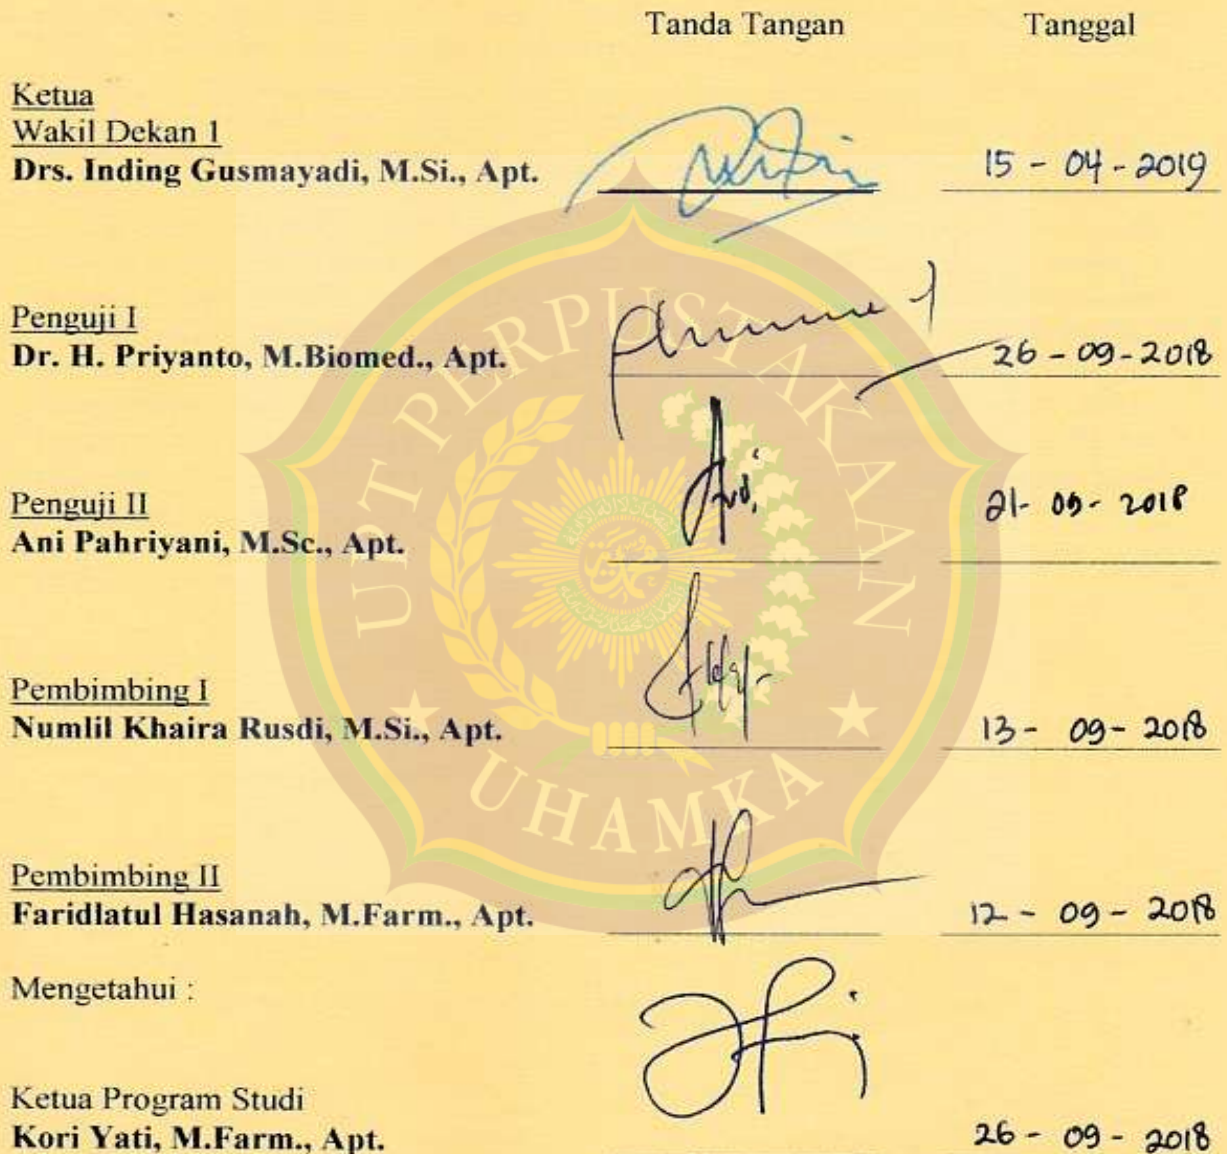 Tanda Tangan Tanggal
Ketua
Wakil Dekan 1
Drs. Inding Gusmayadi, M.Si., Apt. 15 - 04 - 2019
Penguji I
Dr. H. Priyanto, M.Biomed., Apt. 26 - 09 - 2018
Penguji II
Ani Pahriyani, M.Sc., Apt. 21- 09 - 2018
Pembimbing I
Numlil Khaira Rusdi, M.Si., Apt. 13 - 09 - 2018
Pembimbing II
Faridlatul Hasanah, M.Farm., Apt. 12 - 09 - 2018
Mengetahui :
Ketua Program Studi
Kori Yati, M.Farm., Apt. 26 - 09 - 2018
UPT PERPUSTAKAAN
UHAMKA